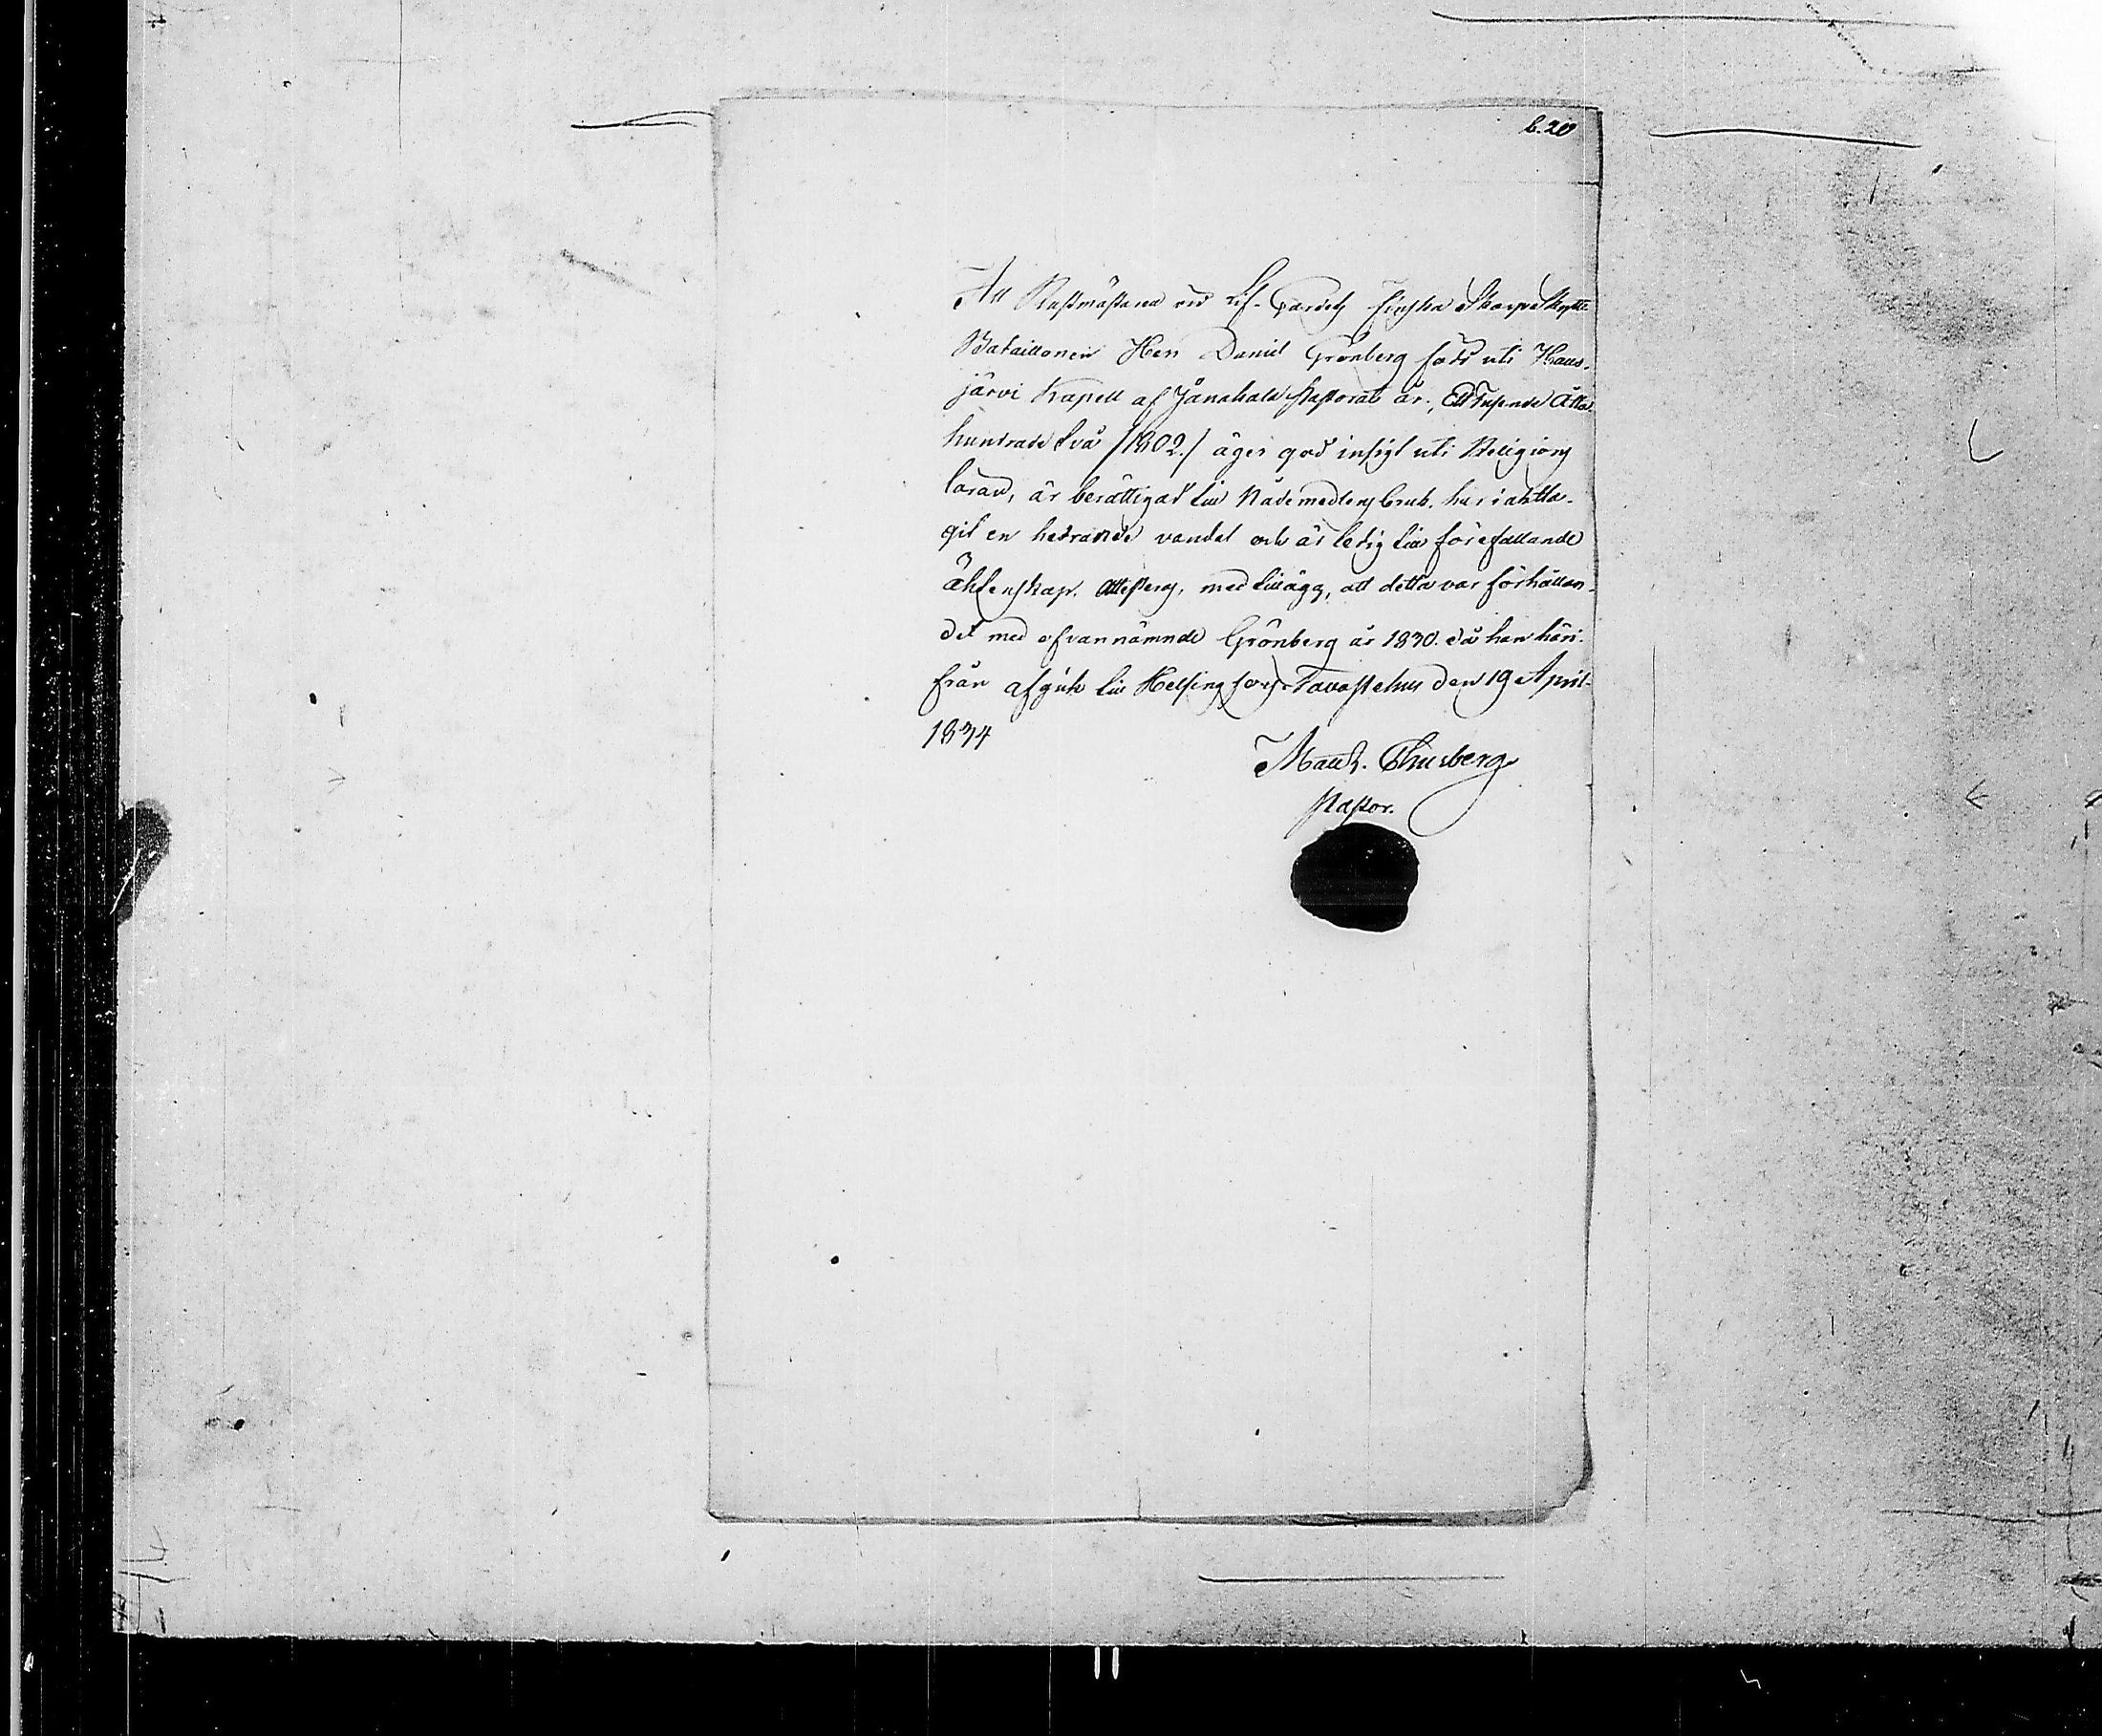 b. 20
Att Rustmästaren vid Lif-Gardets Finska Skarpe Skytte
Bataillonen Herr Daniel Grönberg född uti Haus-
järvi Kapell af Janakala Pastorat år, Ett Tusende Åtta
hundrade två /1802./ äger god insigt uti Religions
läran, är berättigad till Nådemedlens bruk, har iakta-
git en hedrande vandel och är ledig till förefallande
äktenskap. Attesteras, med tillägg, att detta var förhållan-
det med ofvannämnde Grönberg år 1830. då han häri-
från afgick till Helsingfors. Tavastehus den 19 April
1834
Matth. Thusberg
Pastor.